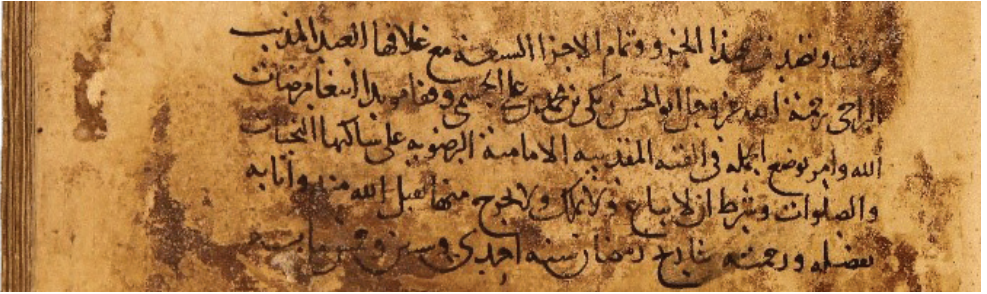 وقف وتصدق بهذا الجزو وتمام الاجزا السبعة مع غلافها العبد المذنب
الراجى رحمة الله عز وجل ابو الحسن زنكى بن محمد بن على وقفا موبدا ابتغا مرضات
الله وامر بوضع الجمله فى القبه المقدسه الامامية الرضويه على ساكنها التحيات
والصلوات وشرط ان لا يباع ولا يملك ولا يخرج منها تقبل الله منه واثابه
بفضله ورحمته بتاريخ رمضان سنه احدى وستين وخمس مايه